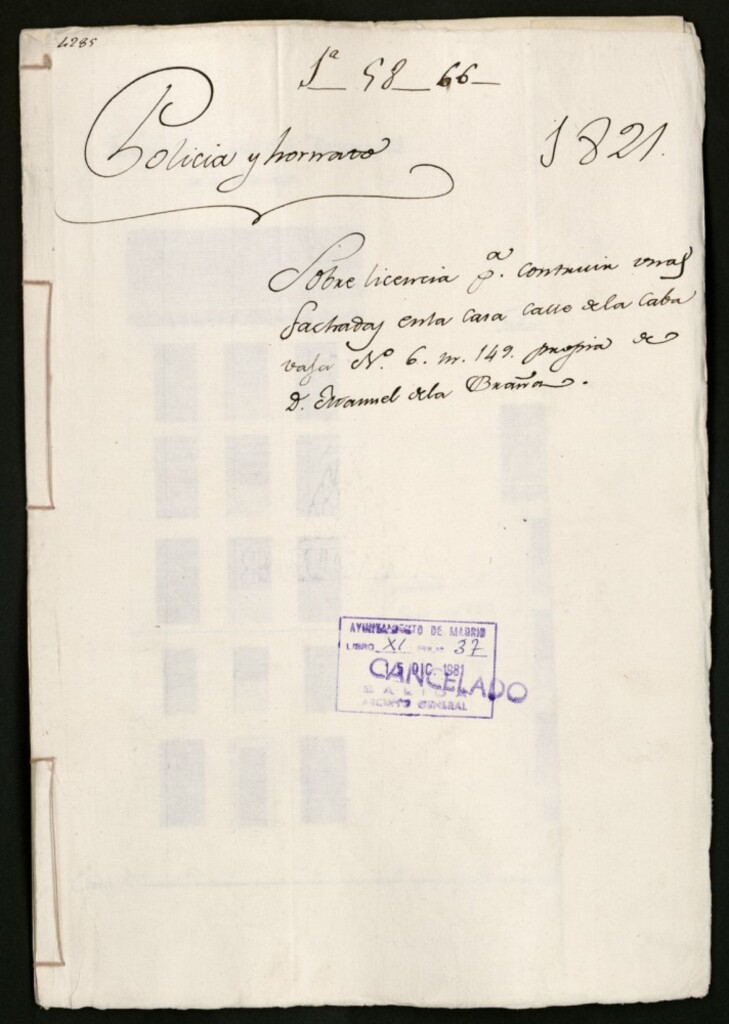 4285
1ª 58_66_
Policia y hornato
1821.
Sobre licencia pª. construir unas
fachadas enla casa calle dela Caba
vaja Nº. 6. m. 149. propia de
D. Manuel dela Braña.
AYUNTAMIENTO DE MADRID
LIBRO XI 37
15 DIC. 1981
CANCELADO
SALIDA
ARCHIVO GENERAL